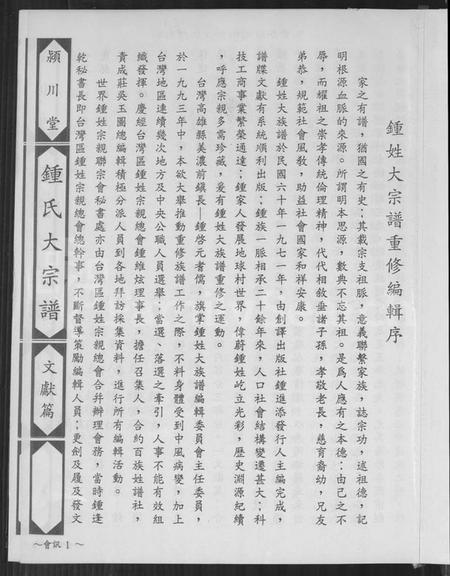 鍾姓大宗譜重修編輯序
家之有譜，猶國之有史；其載宗支祖脈，意義聯繫家族，誌宗功，述祖德，記
明根源血脈的來源。所謂明本思源，數典不忘其祖。是爲人應有之本德；由己之不
辱，而耀祖之崇孝傳統倫理精神，代代相敘垂諸子孫，孝敬老長，慈育裔幼，兄友
弟恭，規範社會風敎，助益社會國家和祥安康。
鍾姓大族譜於民國六十年一九七一年，由創譯出版社鍾進添發行人主編完成，
譜牒文獻有系統順利出版；鍾族一脈相承二十餘年來，人口社會結構變遷甚大；科
技工商事業繁榮通達；鍾家人發展地球村世界，偉蔚鍾姓屹立光彩，歷史淵源紀續
，呼應宗親多需珍藏，爰有鍾姓大族譜重修之運動。
台灣高雄縣美濃前鎮長—鍾啓元者儒，旗掌鍾姓大族譜編輯委員會主任委員，
於一九九三年中，本欲大舉推動重修族譜工作之際，不料身體受到中風病變，加上
台灣地區連續幾次地方及中央公職人員選舉；當選、落選之牽引，人事不能有效組
織發揮。慶經台灣區鍾姓宗親總會鍾維炫理事長，擔任召集人，合約百族姓譜社，
責成莊吳玉圖總編輯積極分派人員到各地拜訪採集資料，進行所有編輯活動。
世界鍾姓宗親聯宗會秘書處亦由台灣區鍾姓宗親總會合幷辦理會務，當時鍾逢
乾秘書長即台灣區鍾姓宗親總會總幹事，不斷督導策勵編輯人員；更劍及履及發文
潁川堂
鍾氏大宗譜
文獻篇
～會訊 1 ～